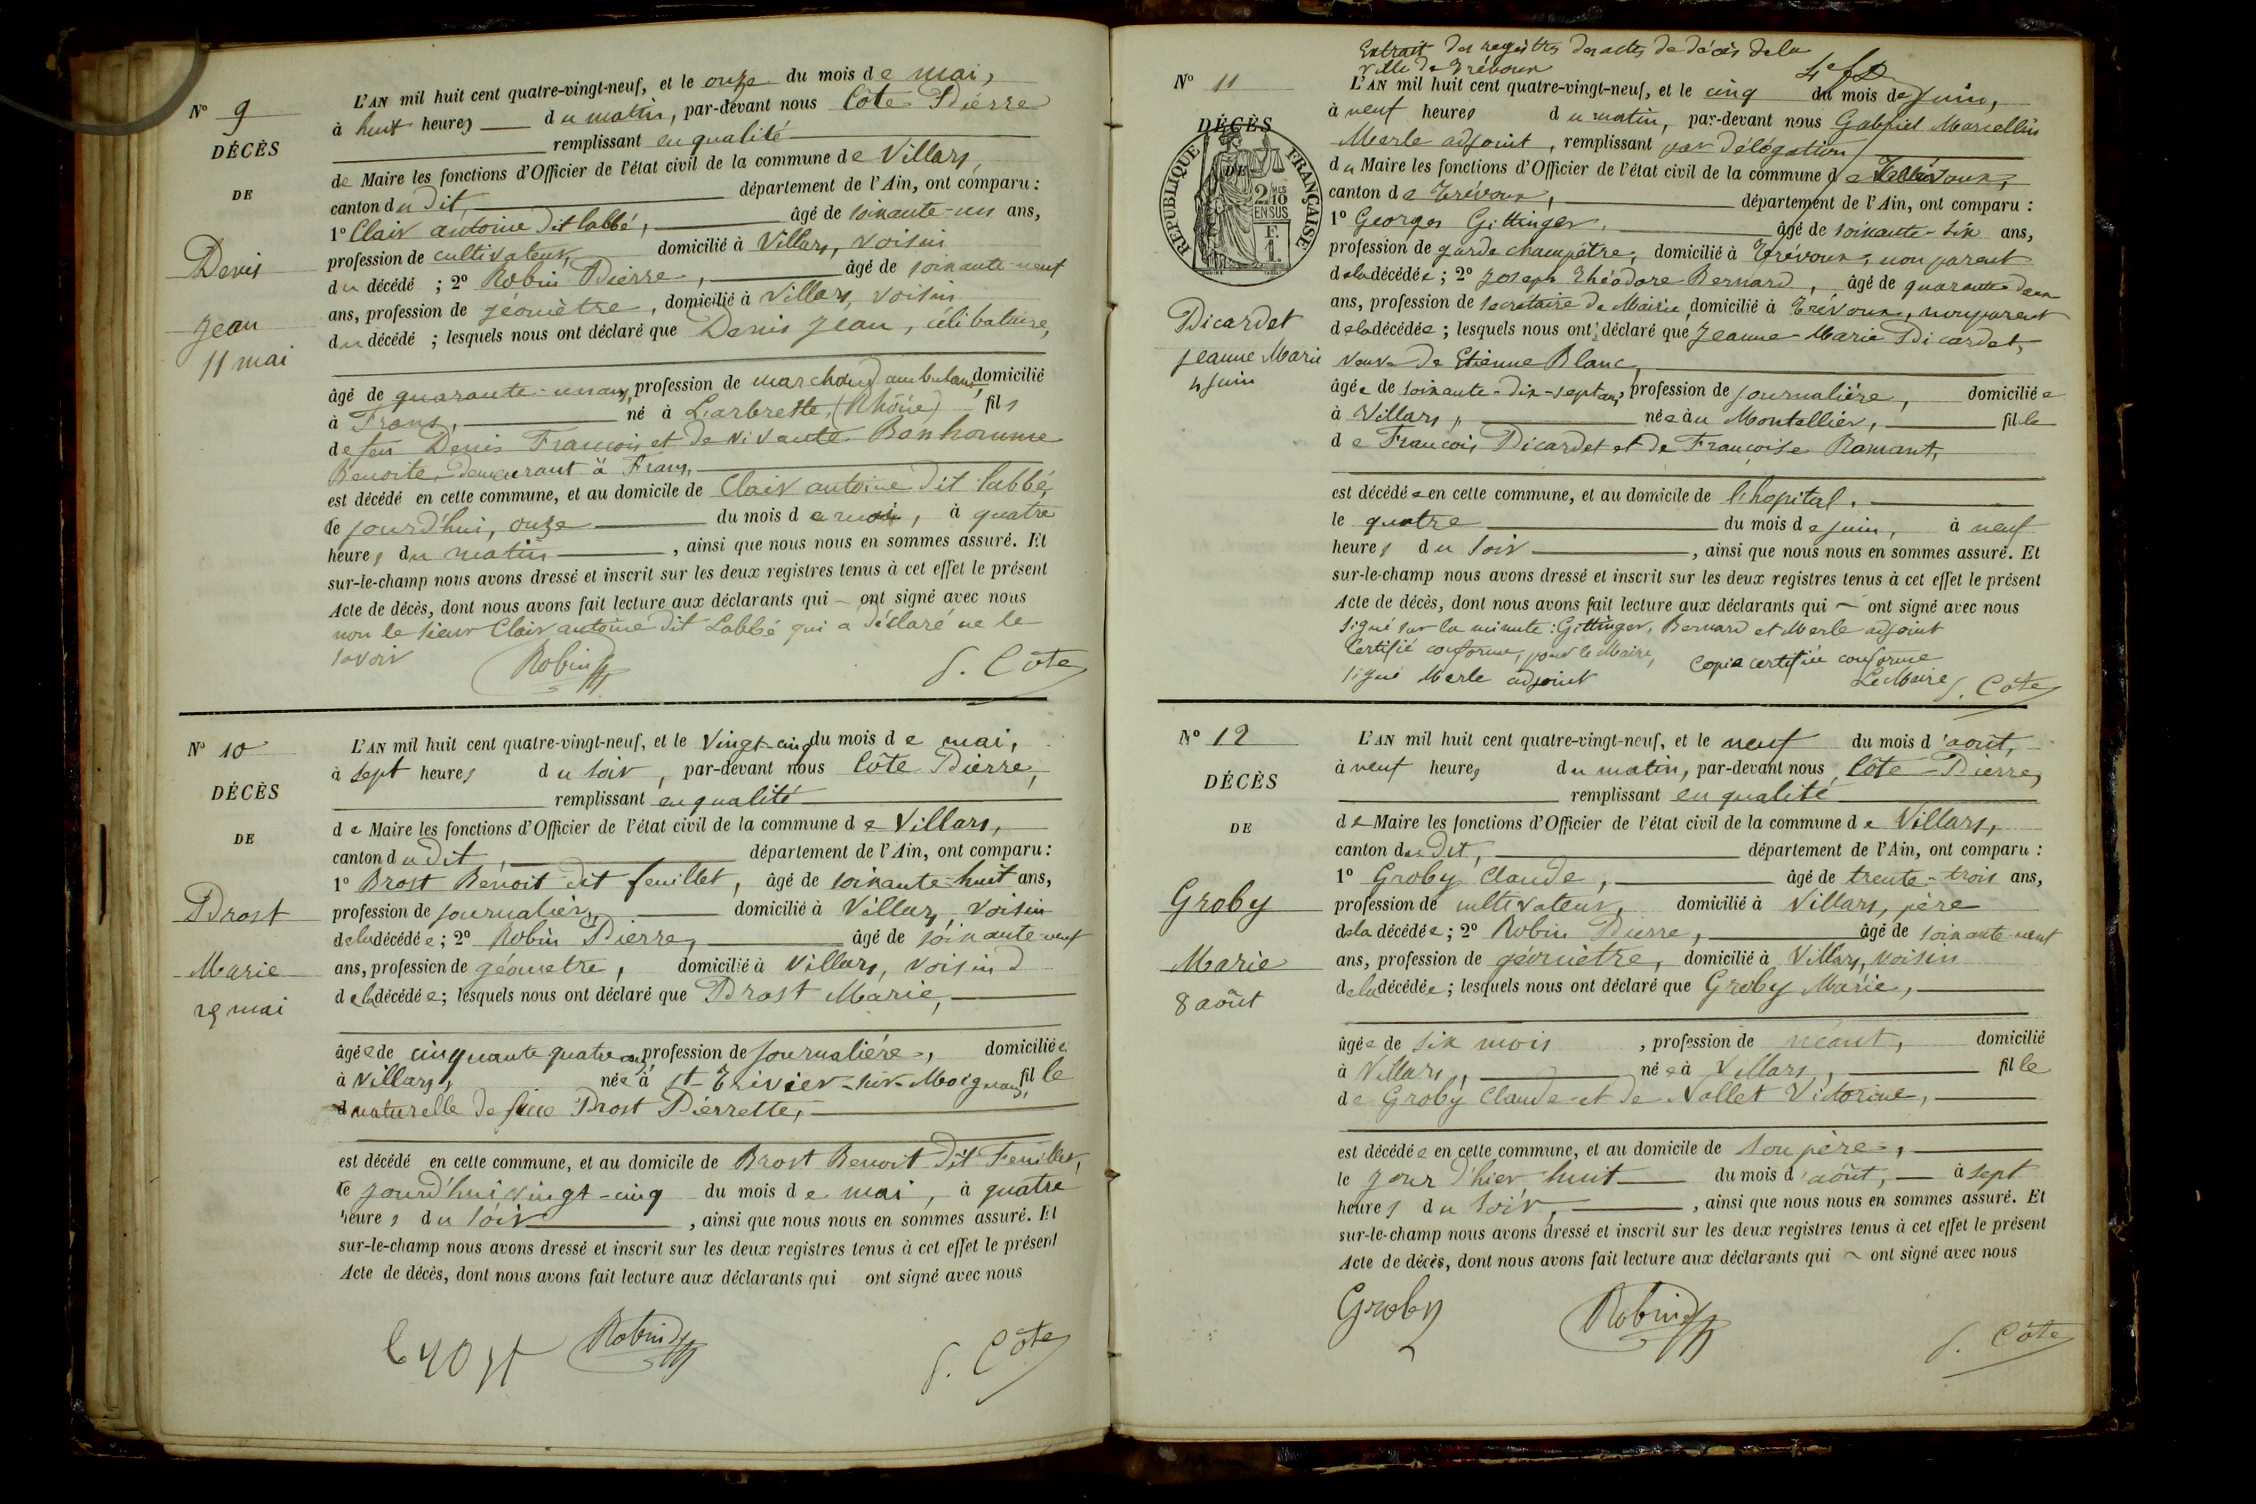 N° 9
DÉCÈS
DE
Denis
Jean
11 mai
L'AN mil huit cent quatre-vingt-neuf, et le onze du mois de mai,
à huit heures du matin, par-devant nous Côte Pierre
remplissant en qualité
de Maire les fonctions d'Officier de l'état civil de la commune de Villars,
canton du dit, département de l'Ain, ont comparu :
1° Clair antoine dit labbé, âgé de soixante-un ans,
profession de cultivateur, domicilié à Villars, voisin
du décédé ; 2° Robin Pierre, âgé de soixante-neuf
ans, profession de géomètre, domicilié à Villars, voisin
du décédé ; lesquels nous ont déclaré que Denis Jean, célibataire,
âgé de quarante-un ans, profession de marchand ambulant, domicilié
à Frans, né à L'arbresle, (Rhône) fils
de feu Denis François et de vivante Bonhomme
Benoite, demeurant à Frans,
est décédé en cette commune, et au domicile de Clair antoine dit labbé,
ce jourd'hui, onze du mois de mai, à quatre
heures du matin, ainsi que nous nous en sommes assuré. Et
sur-le-champ nous avons dressé et inscrit sur les deux registres tenus à cet effet le présent
Acte de décès, dont nous avons fait lecture aux déclarants qui ont signé avec nous
non le sieur Clair antoine dit Labbé qui a déclaré ne le
savoir
Robin
P. Côte
N° 10
DÉCÈS
DE
Prost
Marie
25 mai
L'AN mil huit cent quatre-vingt-neuf, et le vingt-cinq du mois de mai,
à sept heures du soir, par-devant nous Côte Pierre,
remplissant en qualité
de Maire les fonctions d'Officier de l'état civil de la commune de Villars,
canton du dit, département de l'Ain, ont comparu :
1° Brost Benoit dit feuillet, âgé de soixante-huit ans,
profession de journalier, domicilié à Villars, voisin
de la décédée ; 2° Robin Pierre, âgé de soixante-neuf
ans, profession de géometre, domicilié à Villars, voisin
de la décédée ; lesquels nous ont déclaré que Prost Marie,
âgée de cinquante quatre ans, profession de journalière, domiciliée
à Villars, née à St-Trivier-sur-Moignans, fille
naturelle de feue Prost Pierrette,
est décédé en cette commune, et au domicile de Brost Benoit dit Feuillet,
ce jourd'hui vingt-cinq du mois de mai, à quatre
heures du soir, ainsi que nous nous en sommes assuré. Et
sur-le-champ nous avons dressé et inscrit sur les deux registres tenus à cet effet le présent
Acte de décès, dont nous avons fait lecture aux déclarants qui ont signé avec nous
Robin
P. Côte
Extrait des registres des actes de décès de la
ville de Trévoux
N° 11
DÉCÈS
DE
RÉPUBLIQUE FRANÇAISE
2/10 EN SUS
F. 1.
Picardet
Jeanne Marie
4 juin
L'AN mil huit cent quatre-vingt-neuf, et le cinq du mois de Juin,
à neuf heures du matin, par-devant nous Gabriel Marcellin
Merle adjoint, remplissant par délégation
du Maire les fonctions d'Officier de l'état civil de la commune de Trévoux,
canton de Trévoux, département de l'Ain, ont comparu :
1° Georges Gittinger, âgé de soixante-six ans,
profession de garde champêtre, domicilié à Trévoux, non parent
de la décédée ; 2° Joseph Théodore Bernard, âgé de quarante-deux
ans, profession de secrétaire de Mairie, domicilié à Trévoux, non parent
de la décédée ; lesquels nous ont déclaré que Jeanne-Marie Picardet,
veuve de Etienne Blanc,
âgée de soixante-dix-sept ans, profession de journalière, domiciliée
à Villars, née au Montellier, fille
de François Picardet et de Françoise Ramant,
est décédée en cette commune, et au domicile de l'hopital,
le quatre du mois de juin, à neuf
heures du soir, ainsi que nous nous en sommes assuré. Et
sur-le-champ nous avons dressé et inscrit sur les deux registres tenus à cet effet le présent
Acte de décès, dont nous avons fait lecture aux déclarants qui ont signé avec nous
signé sur la minute : Gittinger, Bernard et Merle adjoint
Certifié conforme, pour le Maire, Copie certifiée conforme
signé Merle adjoint Le Maire P. Côte
N° 12
DÉCÈS
DE
Groby
Marie
8 août
L'AN mil huit cent quatre-vingt-neuf, et le neuf du mois d'août,
à neuf heures du matin, par-devant nous Côte-Pierre,
remplissant en qualité
de Maire les fonctions d'Officier de l'état civil de la commune de Villars,
canton du dit, département de l'Ain, ont comparu :
1° Groby Claude, âgé de trente-trois ans,
profession de cultivateur, domicilié à Villars, père
de la décédée ; 2° Robin Pierre, âgé de soixante-neuf
ans, profession de géomètre, domicilié à Villars, voisin
de la décédée ; lesquels nous ont déclaré que Groby Marie,
âgée de six mois, profession de néant, domicilié
à Villars, née à Villars, fille
de Groby Claude et de Nallet Victorine,
est décédée en cette commune, et au domicile de son père,
le jour d'hier huit du mois d'août, à sept
heures du soir, ainsi que nous nous en sommes assuré. Et
sur-le-champ nous avons dressé et inscrit sur les deux registres tenus à cet effet le présent
Acte de décès, dont nous avons fait lecture aux déclarants qui ont signé avec nous
Groby
Robin
P. Côte